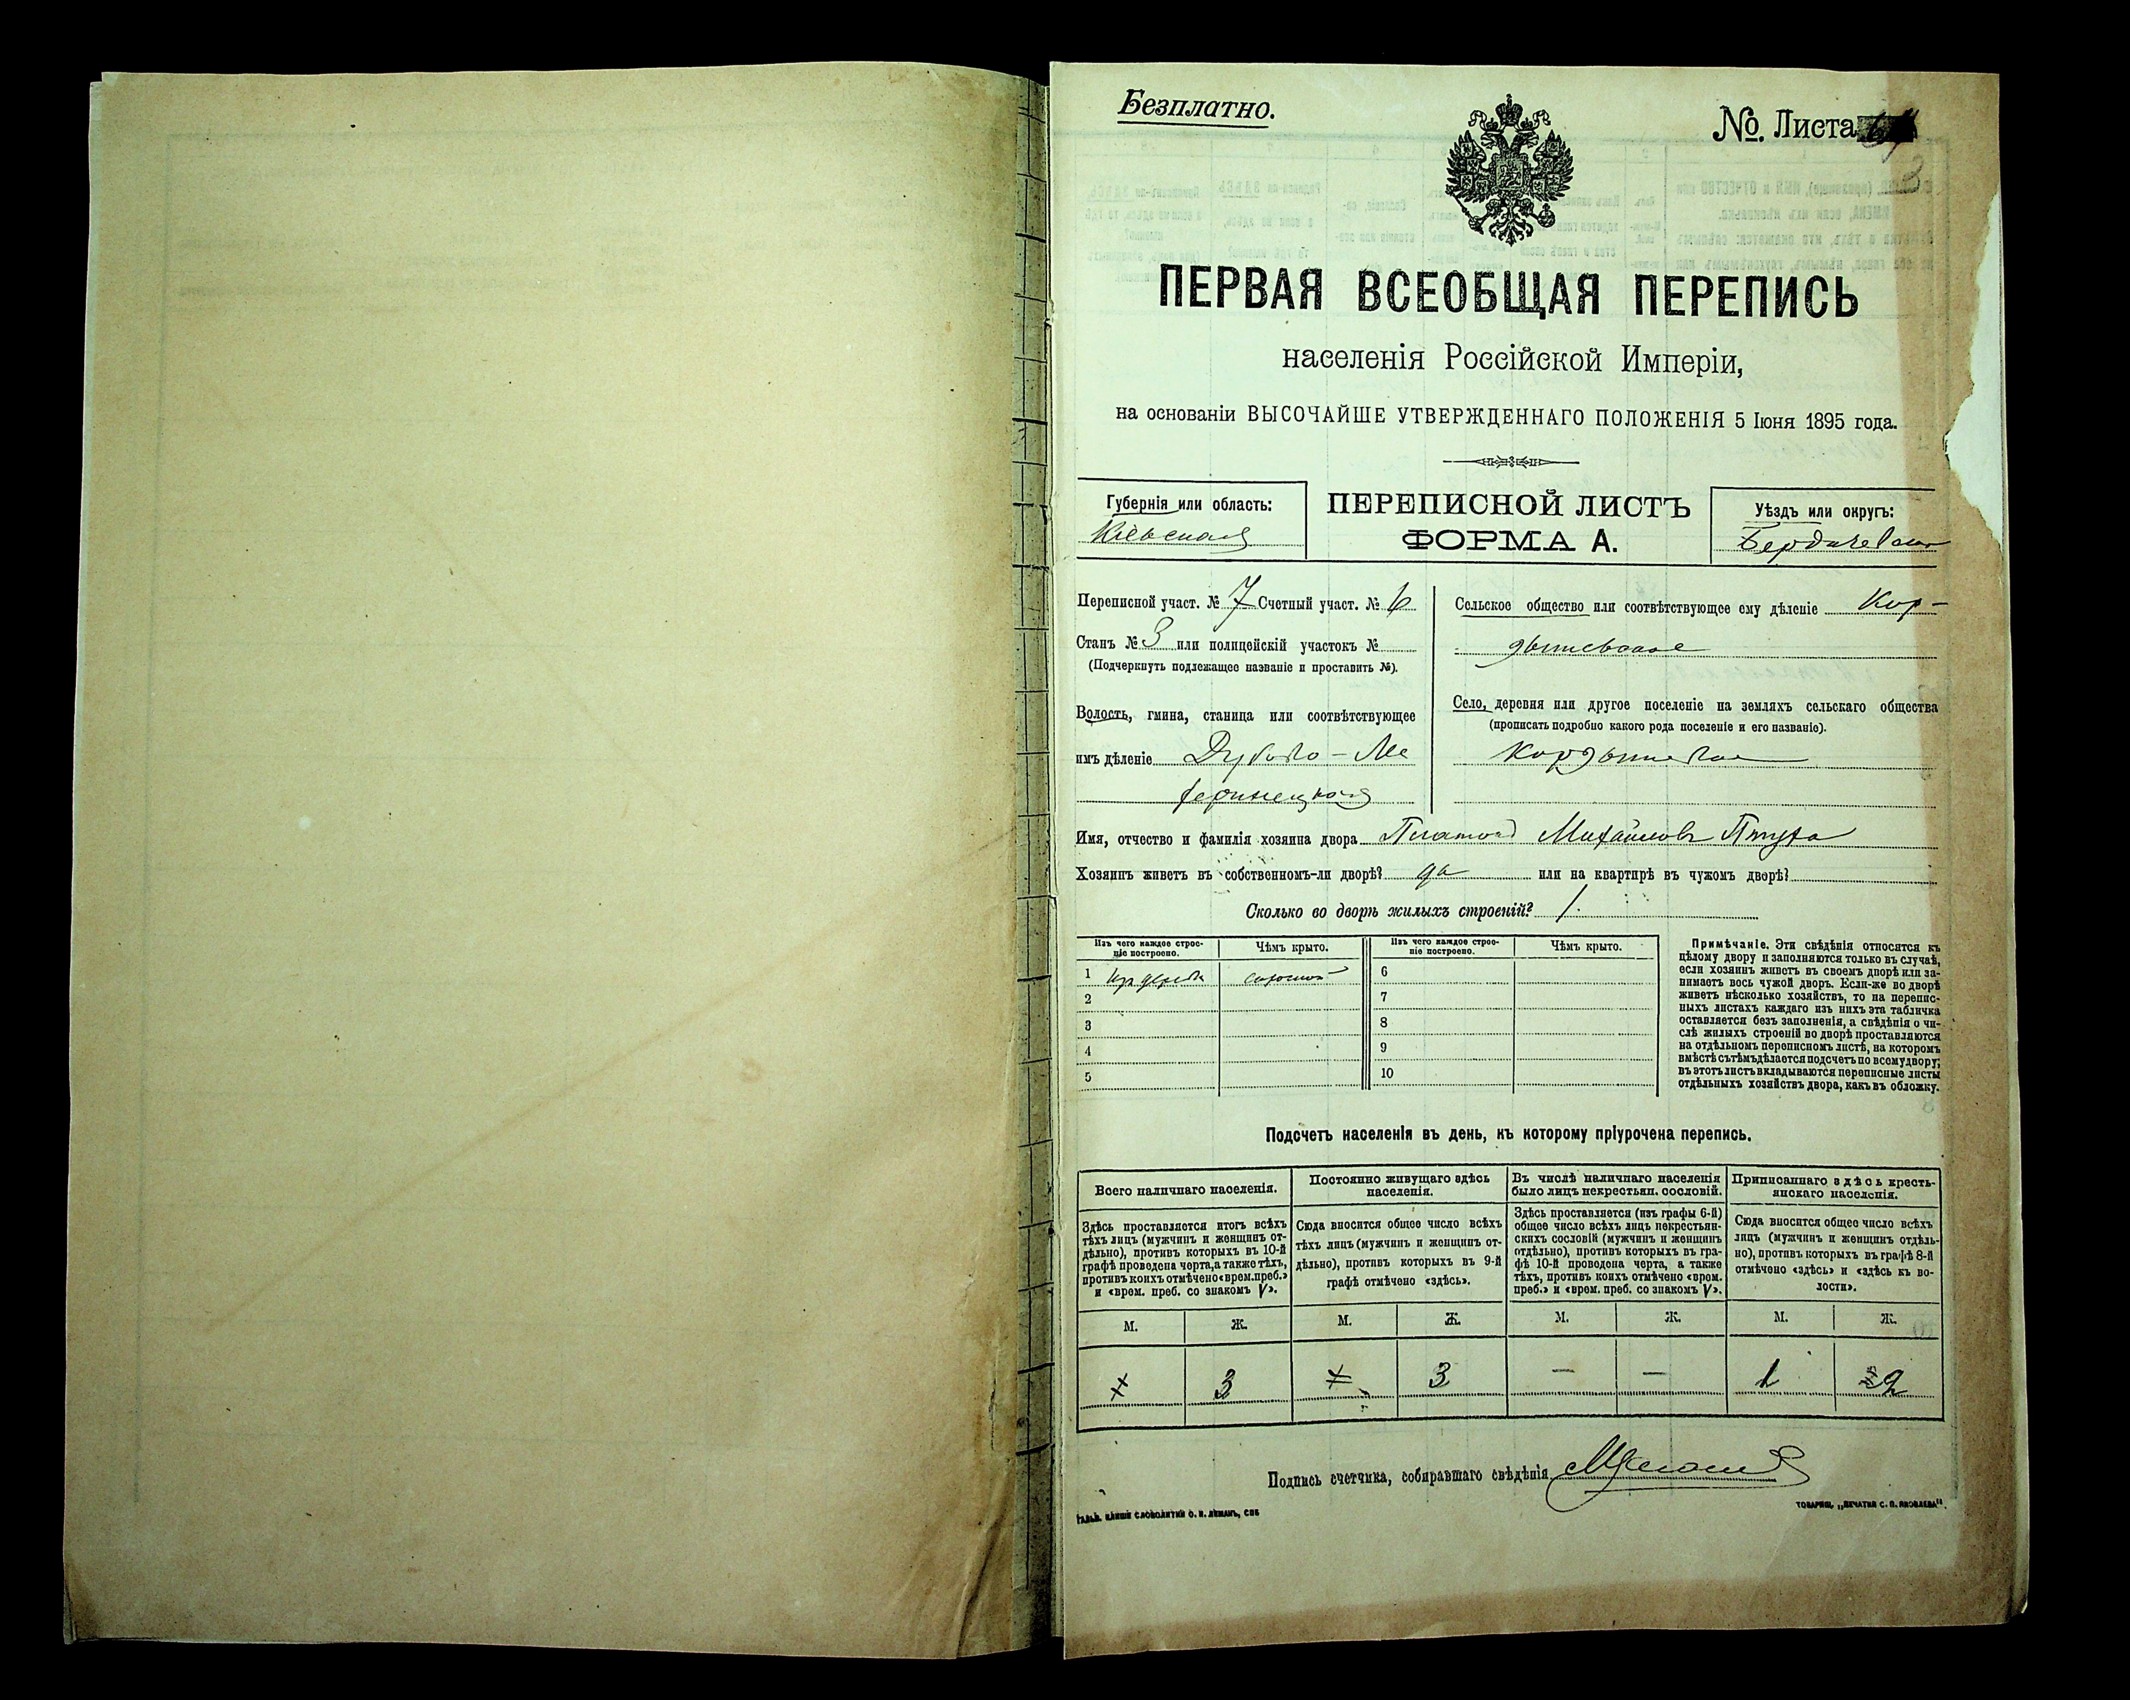 Безплатно.
№. Листа
ПЕРВАЯ ВСЕОБЩАЯ ПЕРЕПИСЬ
населенія Россійской Имперіи,
на основаніи ВЫСОЧАЙШЕ УТВЕРЖДЕННАГО ПОЛОЖЕНІЯ 5 Іюня 1895 года.
Губернія или область:
Кіевская
ПЕРЕПИСНОЙ ЛИСТЪ
ФОРМА А.
Уѣздъ или округъ:
Бердичевскій
Переписной участ. № 7 Счетный участ. № 6
Станъ № 3 или полицейскій участокъ №
(Подчеркнуть подлежащее названіе и проставить №).
Волость, гмина, станица или соотвѣтствующее
имъ дѣленіе Дубово-Ме
Сельское общество или соотвѣтствующее ему дѣленіе Кор-
дышевское
Село, деревня или другое поселеніе на земляхъ сельскаго общества
(прописать подробно какого рода поселеніе и его названіе).
Имя, отчество и фамилія хозяина двора Платонъ Михайловъ Птуха
Хозяинъ живетъ въ собственномъ-ли дворѣ? да или на квартирѣ въ чужомъ дворѣ?
Сколько во дворѣ жилыхъ строеній? 1.
Изъ чего каждое строе-
ніе построено.
Чѣмъ крыто.
Изъ чего каждое строе-
ніе построено.
Чѣмъ крыто.
1 изъ дерева соломой
2
3
4
5
6
7
8
9
10
Примѣчаніе. Эти свѣдѣнія относятся къ
цѣлому двору и заполняются только въ случаѣ,
если хозяинъ живетъ въ своемъ дворѣ или за-
нимаетъ весь чужой дворъ. Если-же во дворѣ
живетъ нѣсколько хозяйствъ, то на перепис-
ныхъ листахъ каждаго изъ нихъ эта табличка
оставляется безъ заполненія, а свѣдѣнія о чи-
слѣ жилыхъ строеній во дворѣ проставляются
на отдѣльномъ переписномъ листѣ, на которомъ
вмѣстѣ съ тѣмъ дѣлается подсчетъ по всему двору;
въ этотъ листъ вкладываются переписные листы
отдѣльныхъ хозяйствъ двора, какъ въ обложку.
Подсчетъ населенія въ день, къ которому пріурочена перепись.
Всего наличнаго населенія.
Здѣсь проставляется итогъ всѣхъ
тѣхъ лицъ (мужчинъ и женщинъ от-
дѣльно), противъ которыхъ въ 10-й
графѣ проведена черта, а также тѣхъ,
противъ коихъ отмѣчено «врем. преб.»
и «врем. преб. со знакомъ V».
Постоянно живущаго здѣсь
населенія.
Сюда вносится общее число всѣхъ
тѣхъ лицъ (мужчинъ и женщинъ от-
дѣльно), противъ которыхъ въ 9-й
графѣ отмѣчено «здѣсь».
Въ числѣ наличнаго населенія
было лицъ некрестьян. сословій.
Здѣсь проставляется (изъ графы 6-й)
общее число всѣхъ лицъ некрестьян-
скихъ сословій (мужчинъ и женщинъ
отдѣльно), противъ которыхъ въ гра-
фѣ 10-й проведена черта, а также
тѣхъ, противъ коихъ отмѣчено «врем.
преб.» и «врем. преб. со знакомъ V».
Приписаннаго здѣсь кресть-
янскаго населенія.
Сюда вносится общее число всѣхъ
лицъ (мужчинъ и женщинъ отдѣль-
но), противъ которыхъ въ графѣ 8-й
отмѣчено «здѣсь» и «здѣсь къ во-
лости».
М. Ж. М. Ж. М. Ж. М. Ж.
3 3 — — 1 2
Подпись счетчика, собиравшаго свѣдѣнія
ТОВАРИЩ. „ПЕЧАТНЯ С. П. ЯКОВЛЕВА“.